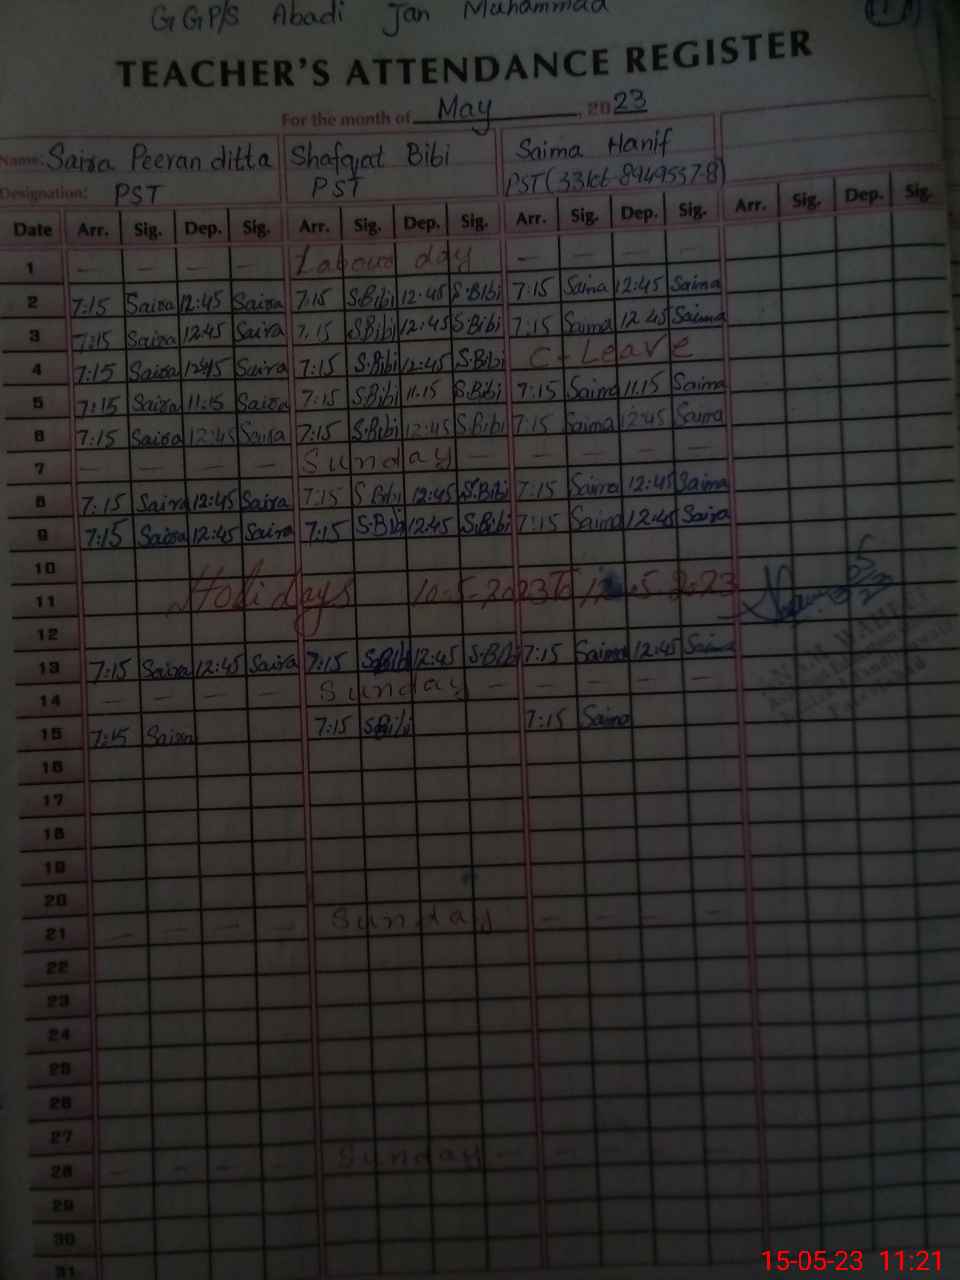 GGP/S Abadi Jan Muhammad
TEACHER'S ATTENDANCE REGISTER
For the month of May, 2023
Name: Saira Peeran ditta Shafqat Bibi Saima Hanif
Designation: PST PST PST
Date Arr. Sig. Dep. Sig. Arr. Sig. Dep. Sig. Arr. Sig. Dep. Sig. Arr. Sig. Dep. Sig.
1 — — — — Labour day — — — —
2 7:15 Saira 12:45 Saira 7:15 S.Bibi 12:45 S.Bibi 7:15 Saima 12:45 Saima
3 7:15 Saira 12:45 Saira 7:15 S.Bibi 12:45 S.Bibi 7:15 Saima 12:45 Saima
4 7:15 Saira 12:45 Saira 7:15 S.Bibi 12:45 S.Bibi C-Leave
5 7:15 Saira 11:15 Saira 7:15 S.Bibi 11.15 S.Bibi 7:15 Saima 11.15 Saima
6 7:15 Saira 12:45 Saira 7:15 S.Bibi 12:45 S.Bibi 7:15 Saima 12:45 Saima
7 — — — — Sunday — — — — —
8 7:15 Saira 12:45 Saira 7:15 S Bibi 12:45 S.Bibi 7:15 Saima 12:45 Saima
9 7:15 Saira 12:45 Saira 7:15 S.Bibi 12:45 S.Bibi 7:15 Saima 12:45 Saira
10
11 Holidays 10-5-2023 To 12-5-2023
12
13 7:15 Saira 12:45 Saira 7:15 S.Bibi 12:45 S.Bibi 7:15 Saima 12:45 Saima
14 — — — — Sunday — — — — —
15 7:15 Saira 7:15 S.Bibi 7:15 Saima
16
17
18
19
20
21 — — — — Sunday — — — —
22
23
24
25
26
27
28 — — — — Sunday — — — —
29
30
31
15-05-23 11:21